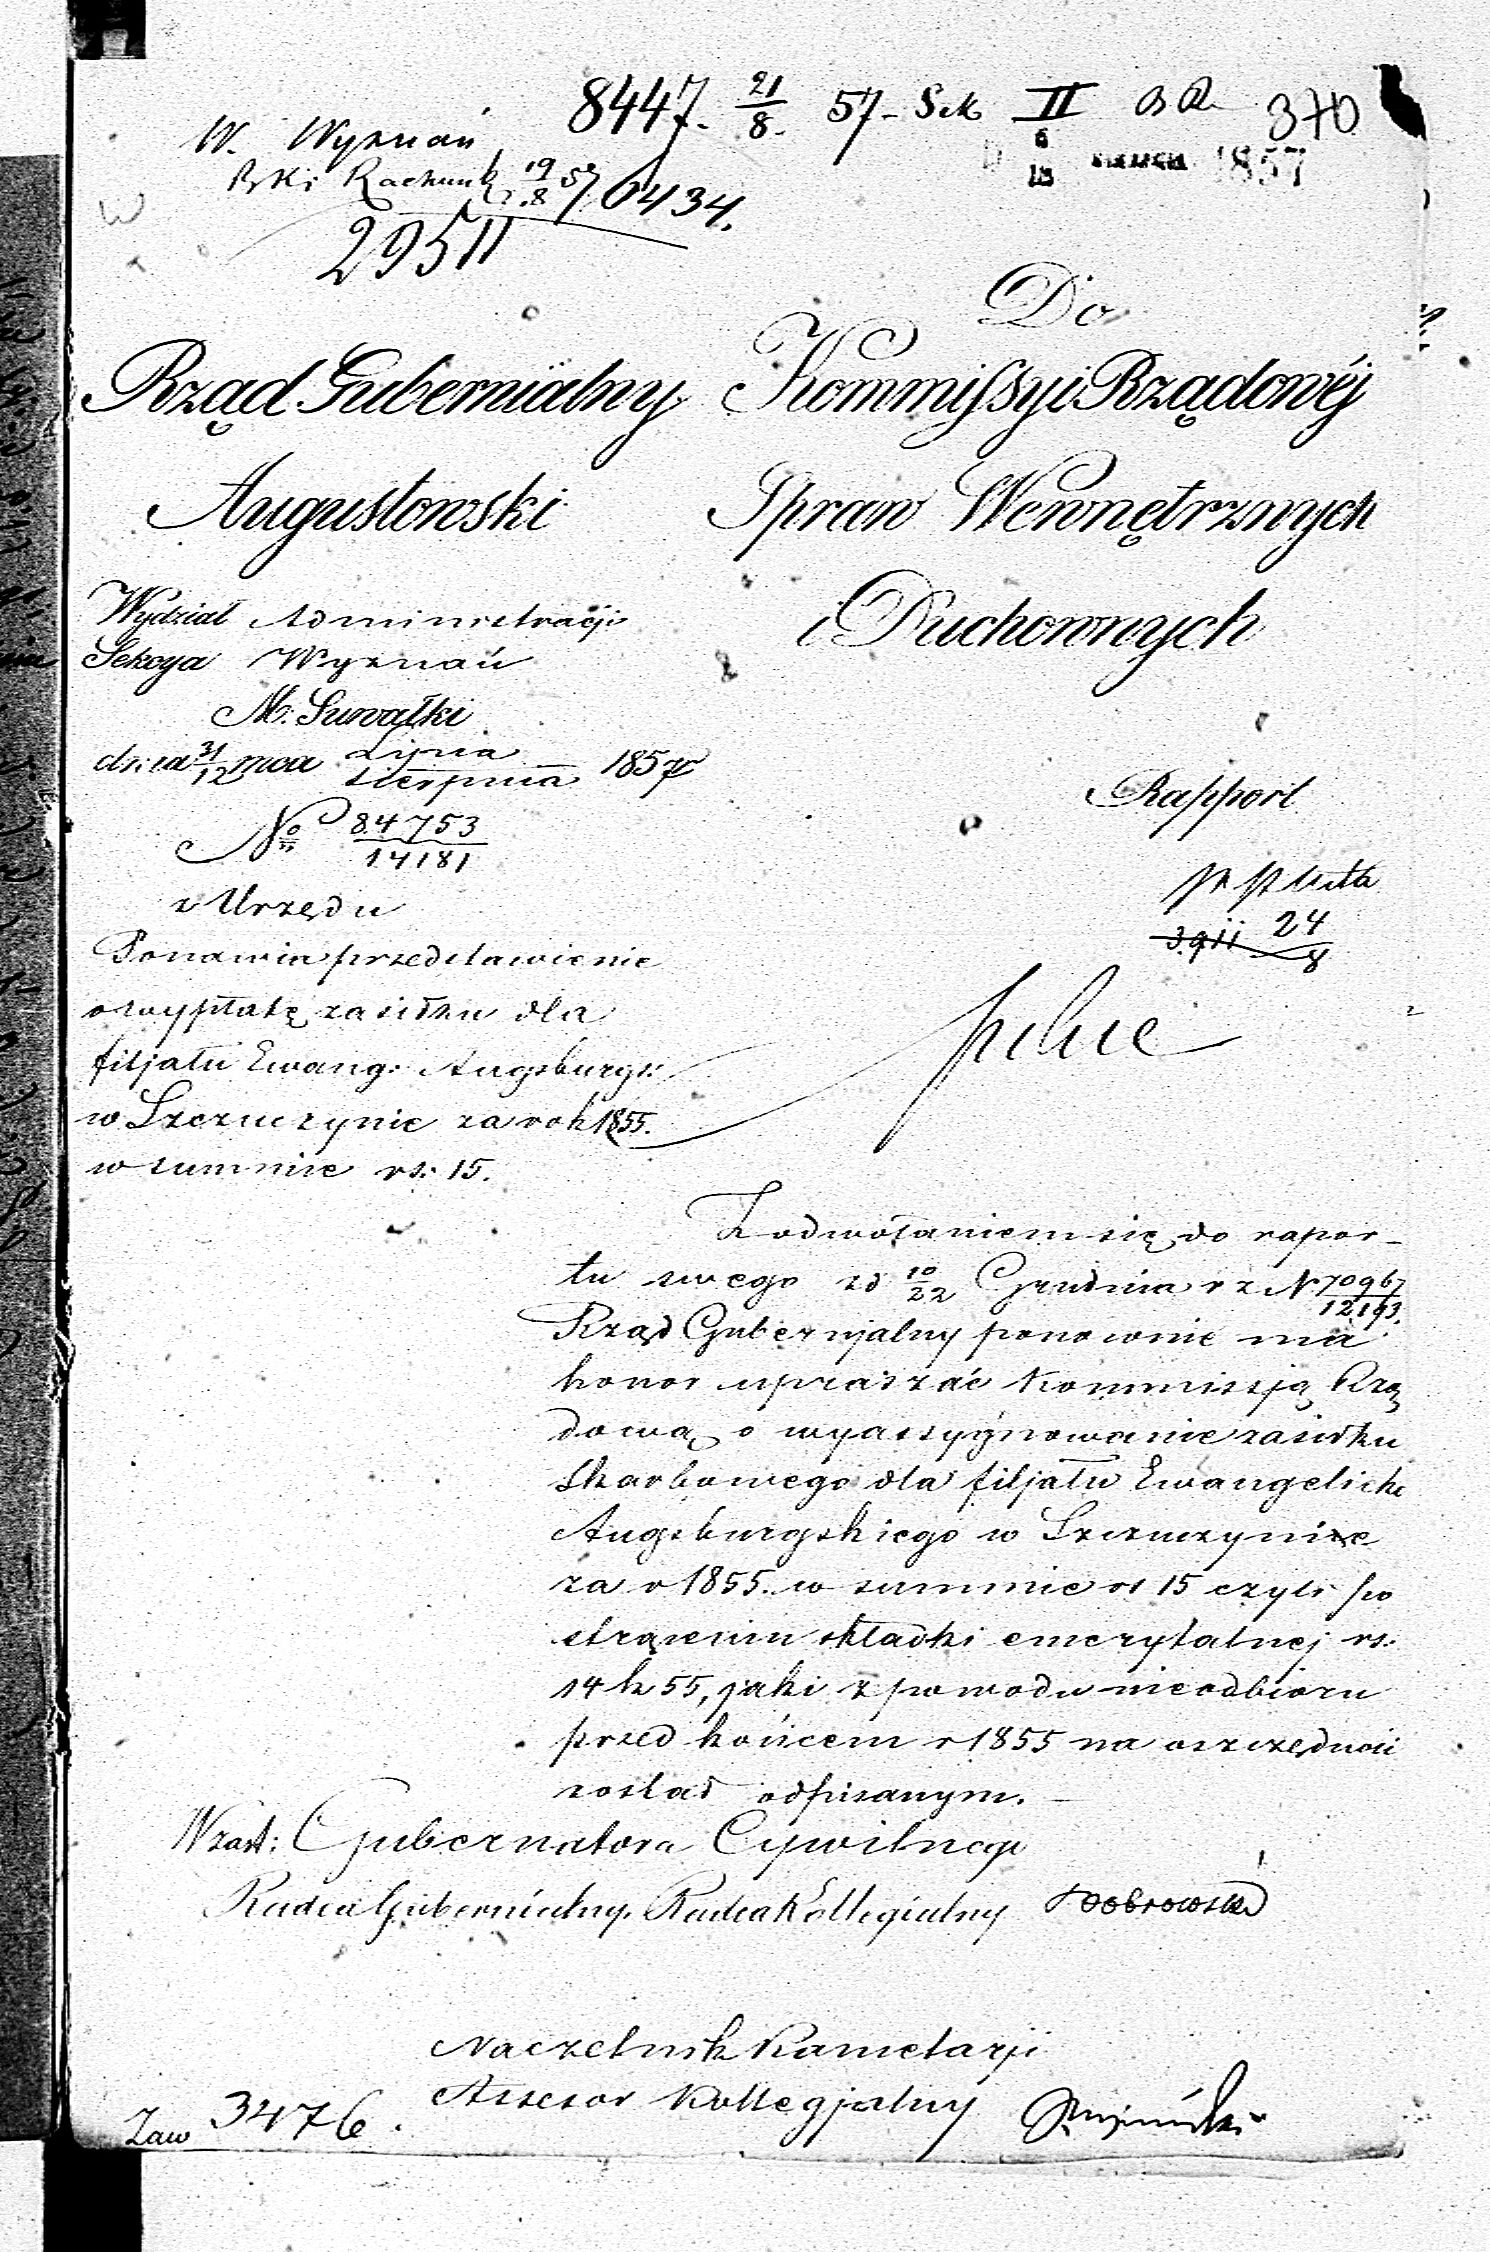 8447. 21/8. 57 Sek II 370
W. Wyznań
19/8 57 0434.
1857
29511
Do
Rząd Gubernialny
Kommissyi Rządowéj
Augustowski
Spraw Wewnętrznych
i Duchownych
Wydział Administracji
Sekcya Wyznań
M. Suwałki
dnia 31/12 mca Lipca/Sierpnia 1857
No 84753/14181
z Urzędu
Rapport
24/8
Ponawia przedstawienie
o wypłatę zasiłku dla
filjału Ewang: Augsburgs:
w Szczuczynie za rok 1855.
w summie rs: 15.
Z odwołaniem się do rapor-
tu swego z d 10/22 Grudnia r z N 70967/12193.
Rząd Gubernjalny ponownie ma
honor upraszać Kommissją Rzą
dową o wyassygnowanie zasiłku
Skarbowego dla filjału Ewangelicko
Augsburgskiego w Szczuczynie
za r 1855. w summie rs 15 czyli po
strąceniu składki emerytalnej rs:
14 k 55, jaki z powodu nieodbioru
przed końcem r 1855 na oszczędności
został odpisanym.
W zast: Gubernatora Cywilnego
Radca Gubernialny, Radca Kollegialny Dobrowolski
Naczelnik Kancelarji
Assesor Kollegjalny
Zaw 3476.